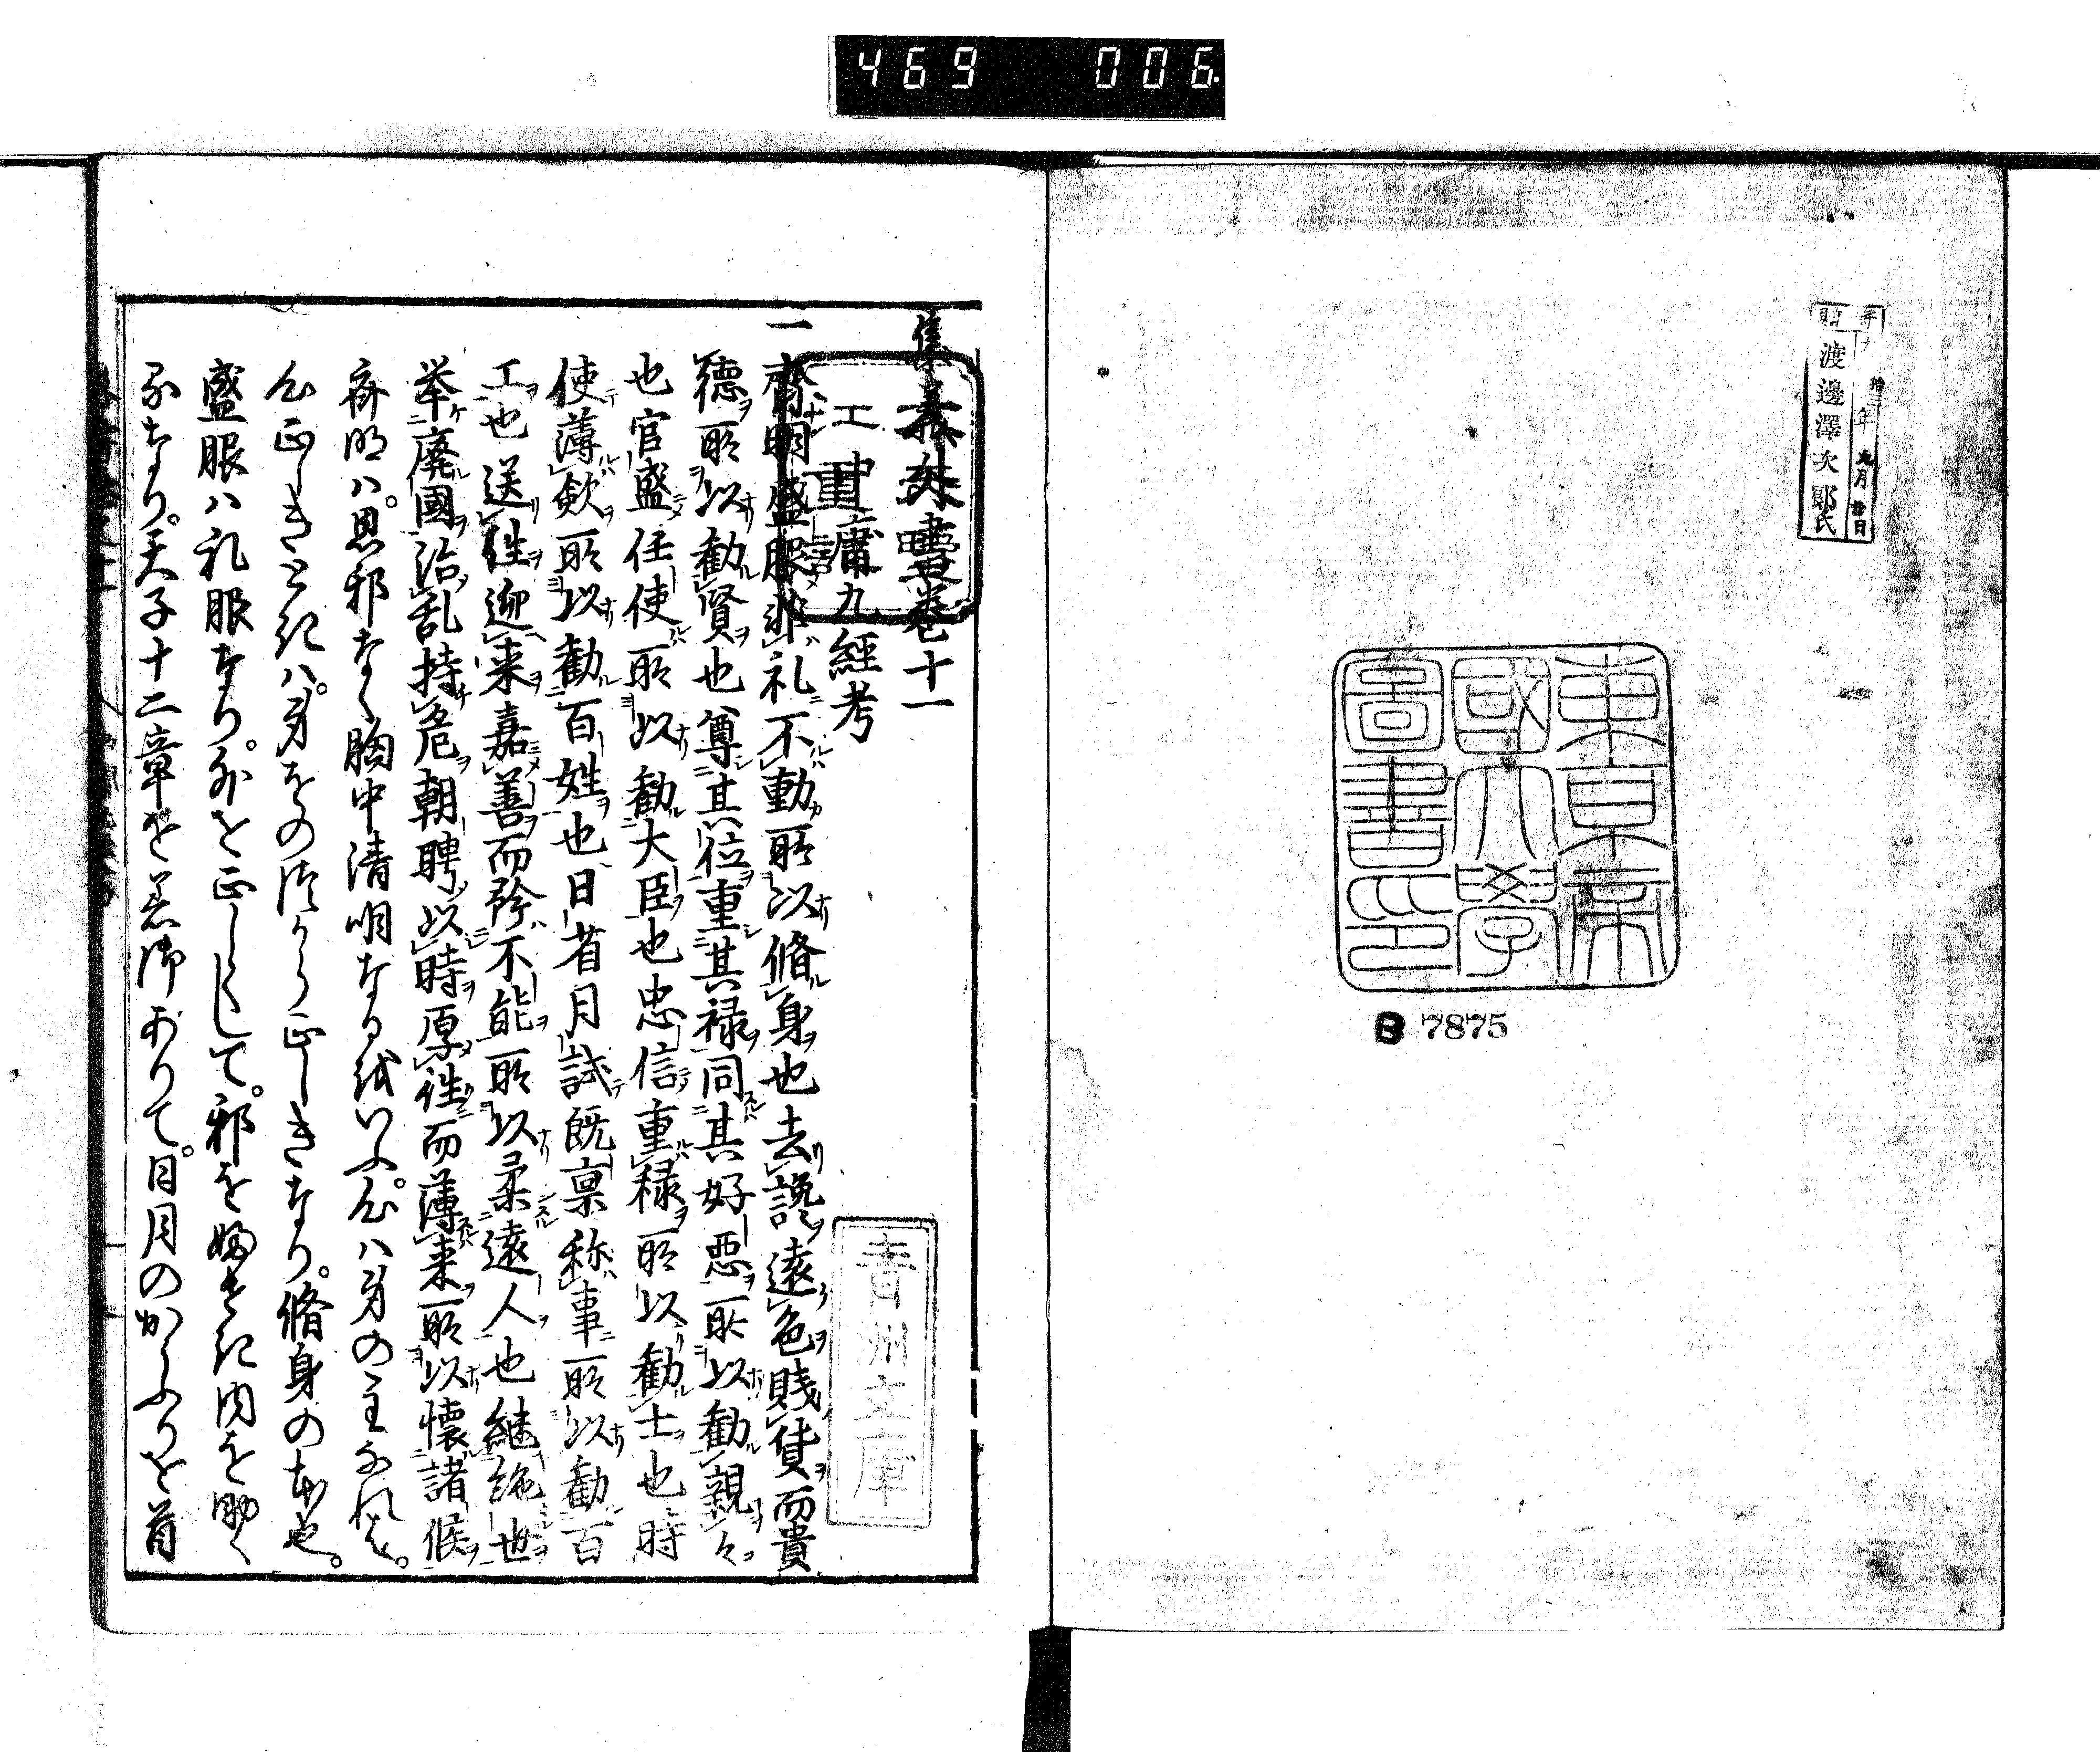 469 006
寄贈
渡邊澤次郎氏
東京帝
國大學
圖書印
B 7875
集義外書卷十一
中庸九經考
青州文庫
一齋明盛服非礼不動所以脩身也去讒遠色賤貨而貴
徳所以勸賢也尊其位重其禄同其好惡所以勸親々
也官盛任使所以勸大臣也忠信重禄所以勸士也時
使薄歛所以勸百姓也日省月試既禀称事所以勸百
工也送往迎来嘉善而矜不能所以柔遠人也継絶世
挙廃國治乱持危朝聘以時厚往而薄来所以懐諸侯
斉明ハ。思邪なく胸中清明なるをいふ。心ハ身の主なれば。
心正しきときハ。身をのづから正しきなり。脩身の本也。
盛服ハ礼服なり。外を正しくして。邪をふせぎ内を助く
るなり。天子十二章を著御ありて。日月のかふりを首